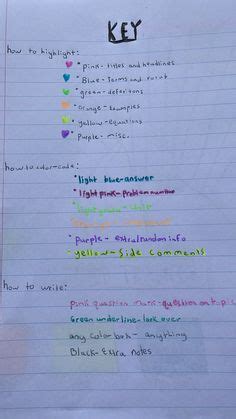 KEY
how to highlight:
* pink - titles and headlines
* Blue - terms and
* green - defenitons
* orange - Examples
* yellow - Equations
* Purple - misc.
how to color-code:
* light blue - answer
* light pink - problem number
* light green - unit
* purple - extra/random info
* yellow - Side comments
how to write:
pink question mark - question on topic
Green underline - look over
any color box - anything
Black - Extra notes